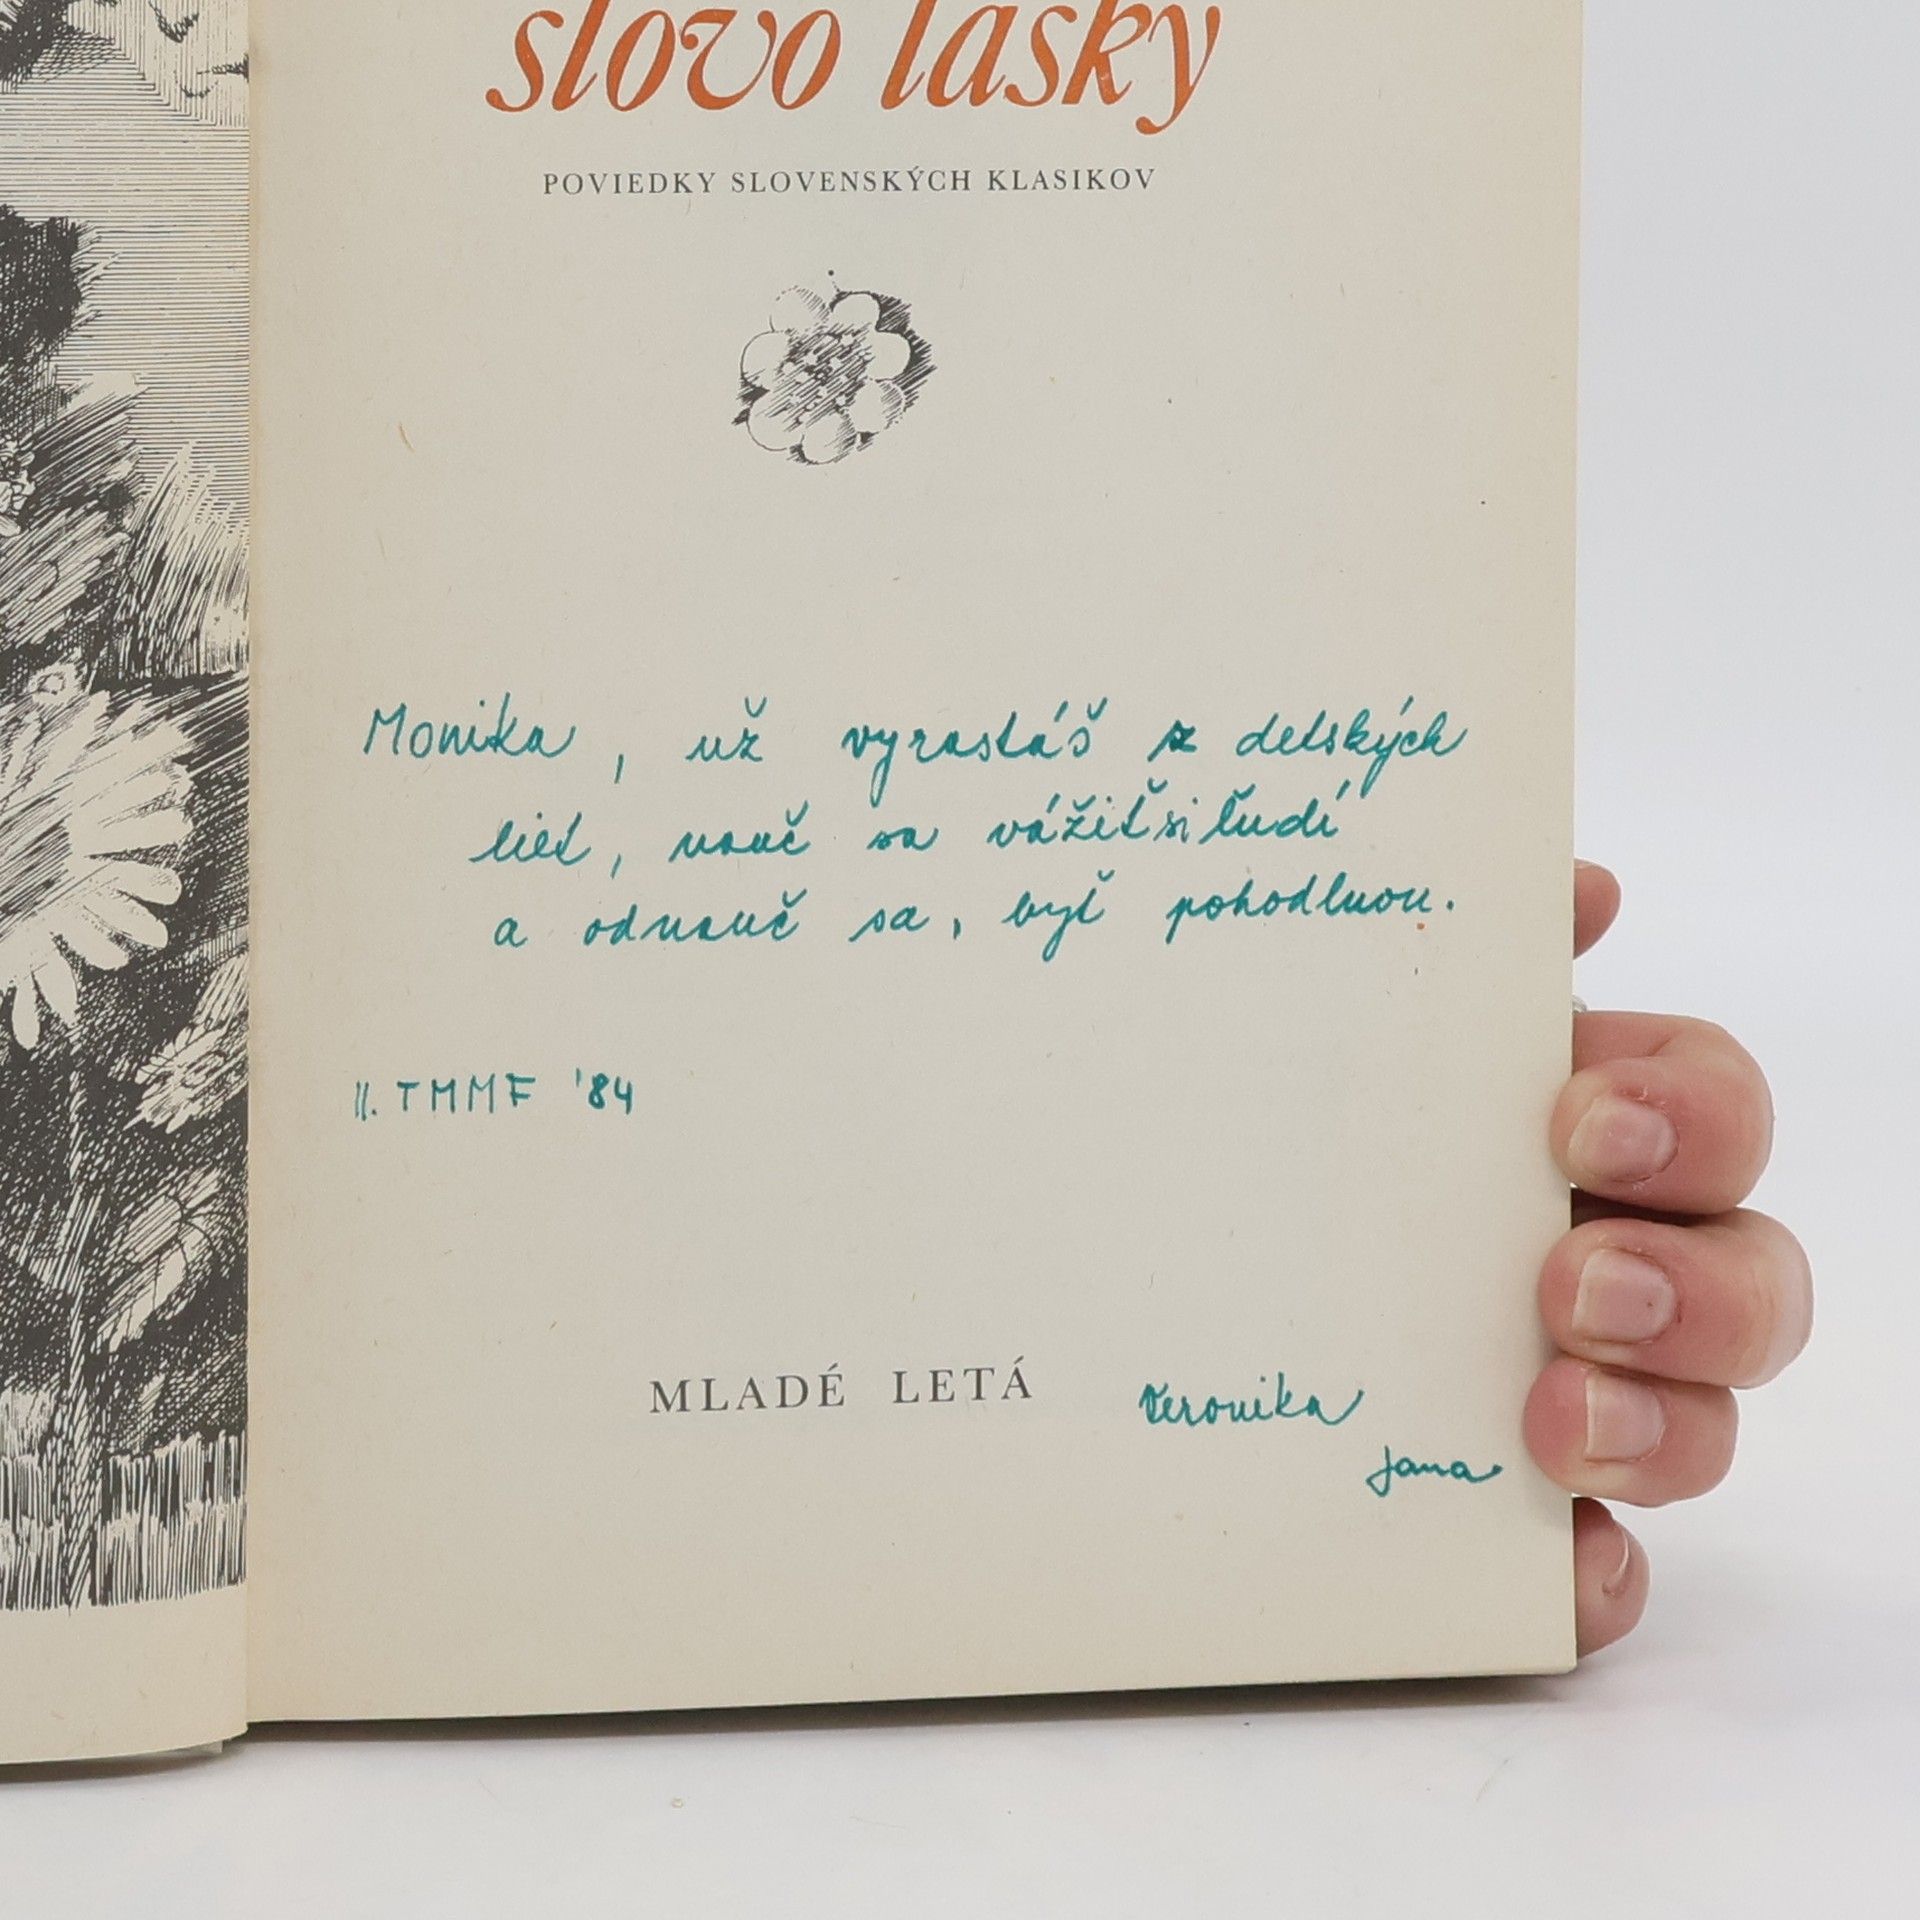 slovo lásky
POVIEDKY SLOVENSKÝCH KLASIKOV
Monika, už vyrastáš z detských
liet, nauč sa vážiť si ľudí
a odnauč sa, byť pohodlnou.
II. TMMF '84
MLADÉ LETÁ
Veronika
Jana